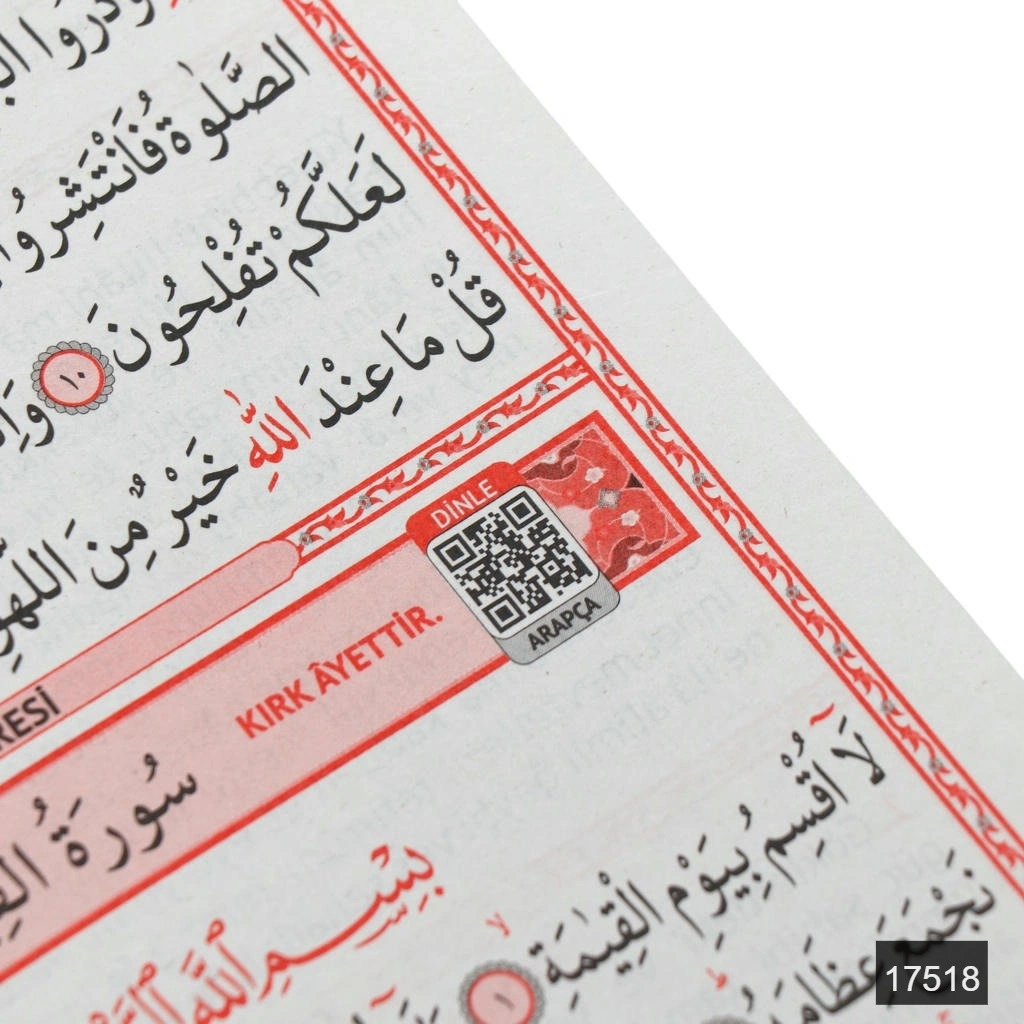 وَذَرُوا
الصَّلٰوةُ فَانْتَشِرُوا
لَعَلَّكُمْ تُفْلِحُونَ ١٠
قُلْ مَا عِنْدَ اللّٰهِ خَيْرٌ مِنَ اللَّهْوِ
DİNLE
ARAPÇA
RESİ
KIRK ÂYETTİR.
سُورَةُ
بِسْمِ اللّٰهِ
لَٓا اُقْسِمُ بِيَوْمِ الْقِيٰمَةِۙ ١
نَجْمَعَ عِظَامَهُ
17518